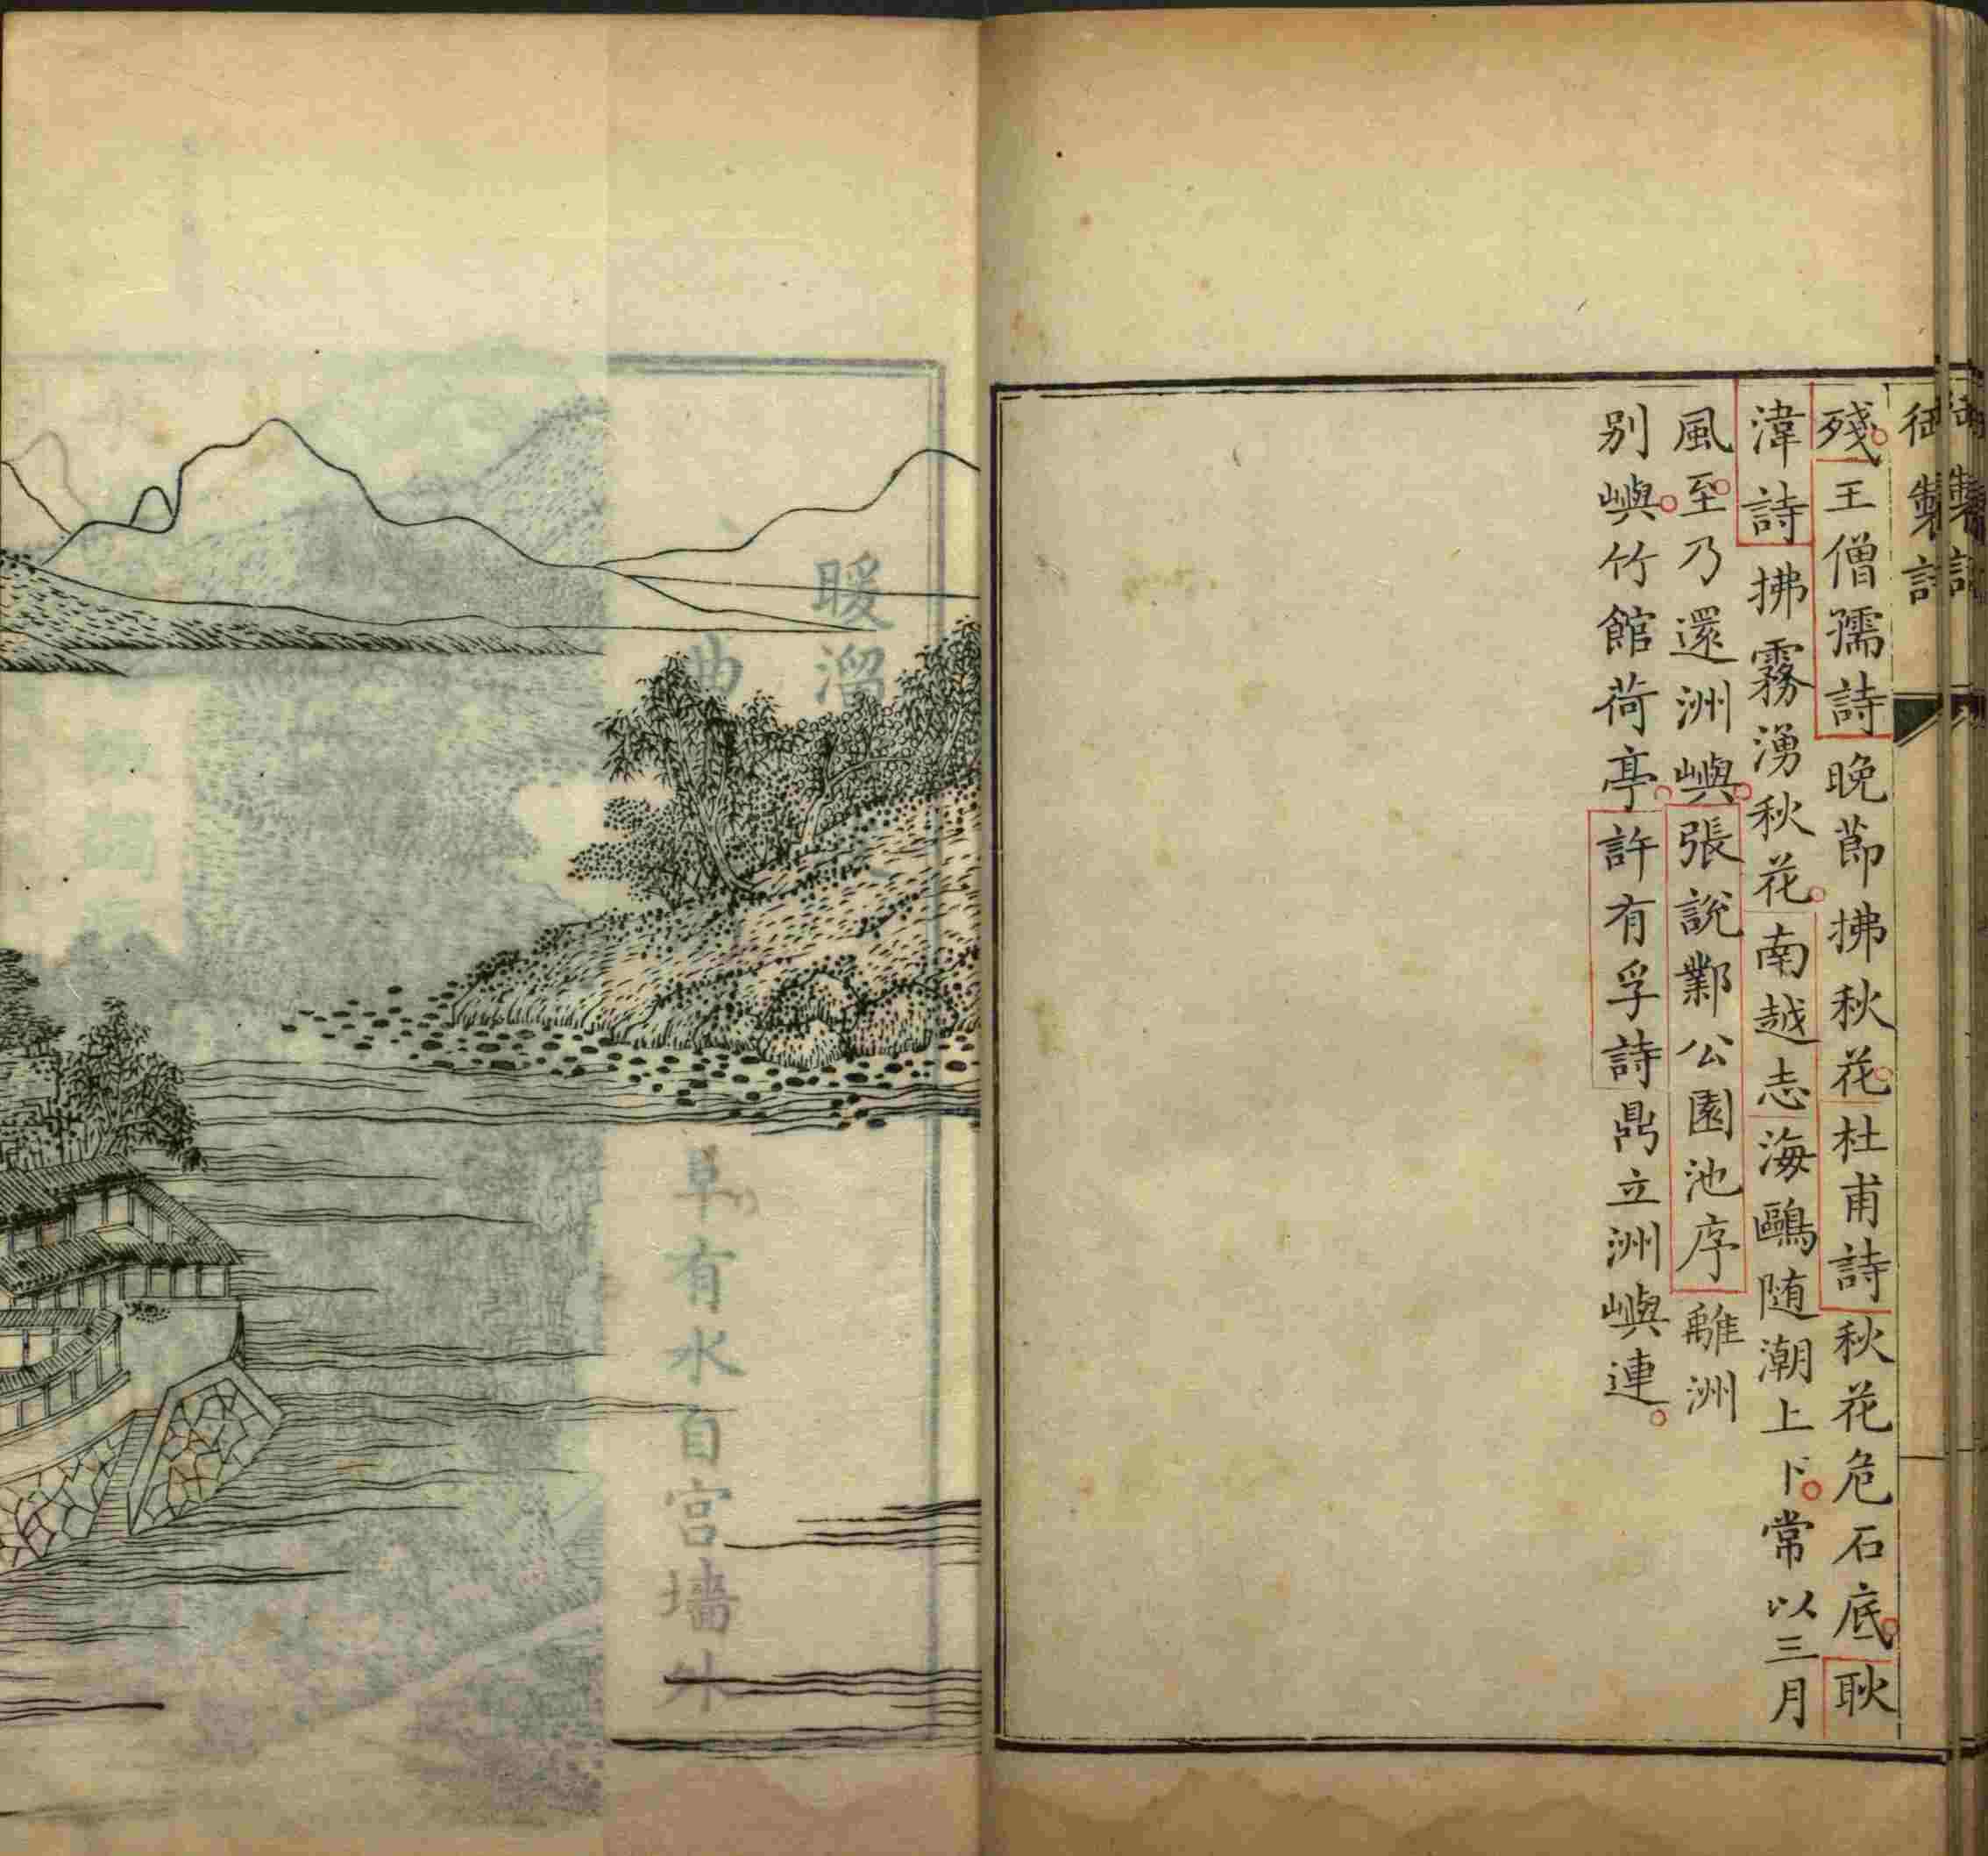 御製詩
殘王僧孺詩晚莭拂秋花杜甫詩秋花危石底耿
湋詩拂霧湧秋花南越志海鷗随潮上下常以三月
風至乃還洲嶼張說鄴公園池序離洲
別嶼竹館荷亭許有孚詩鼎立洲嶼連
暖溜
曲
阜有水自宮墻外